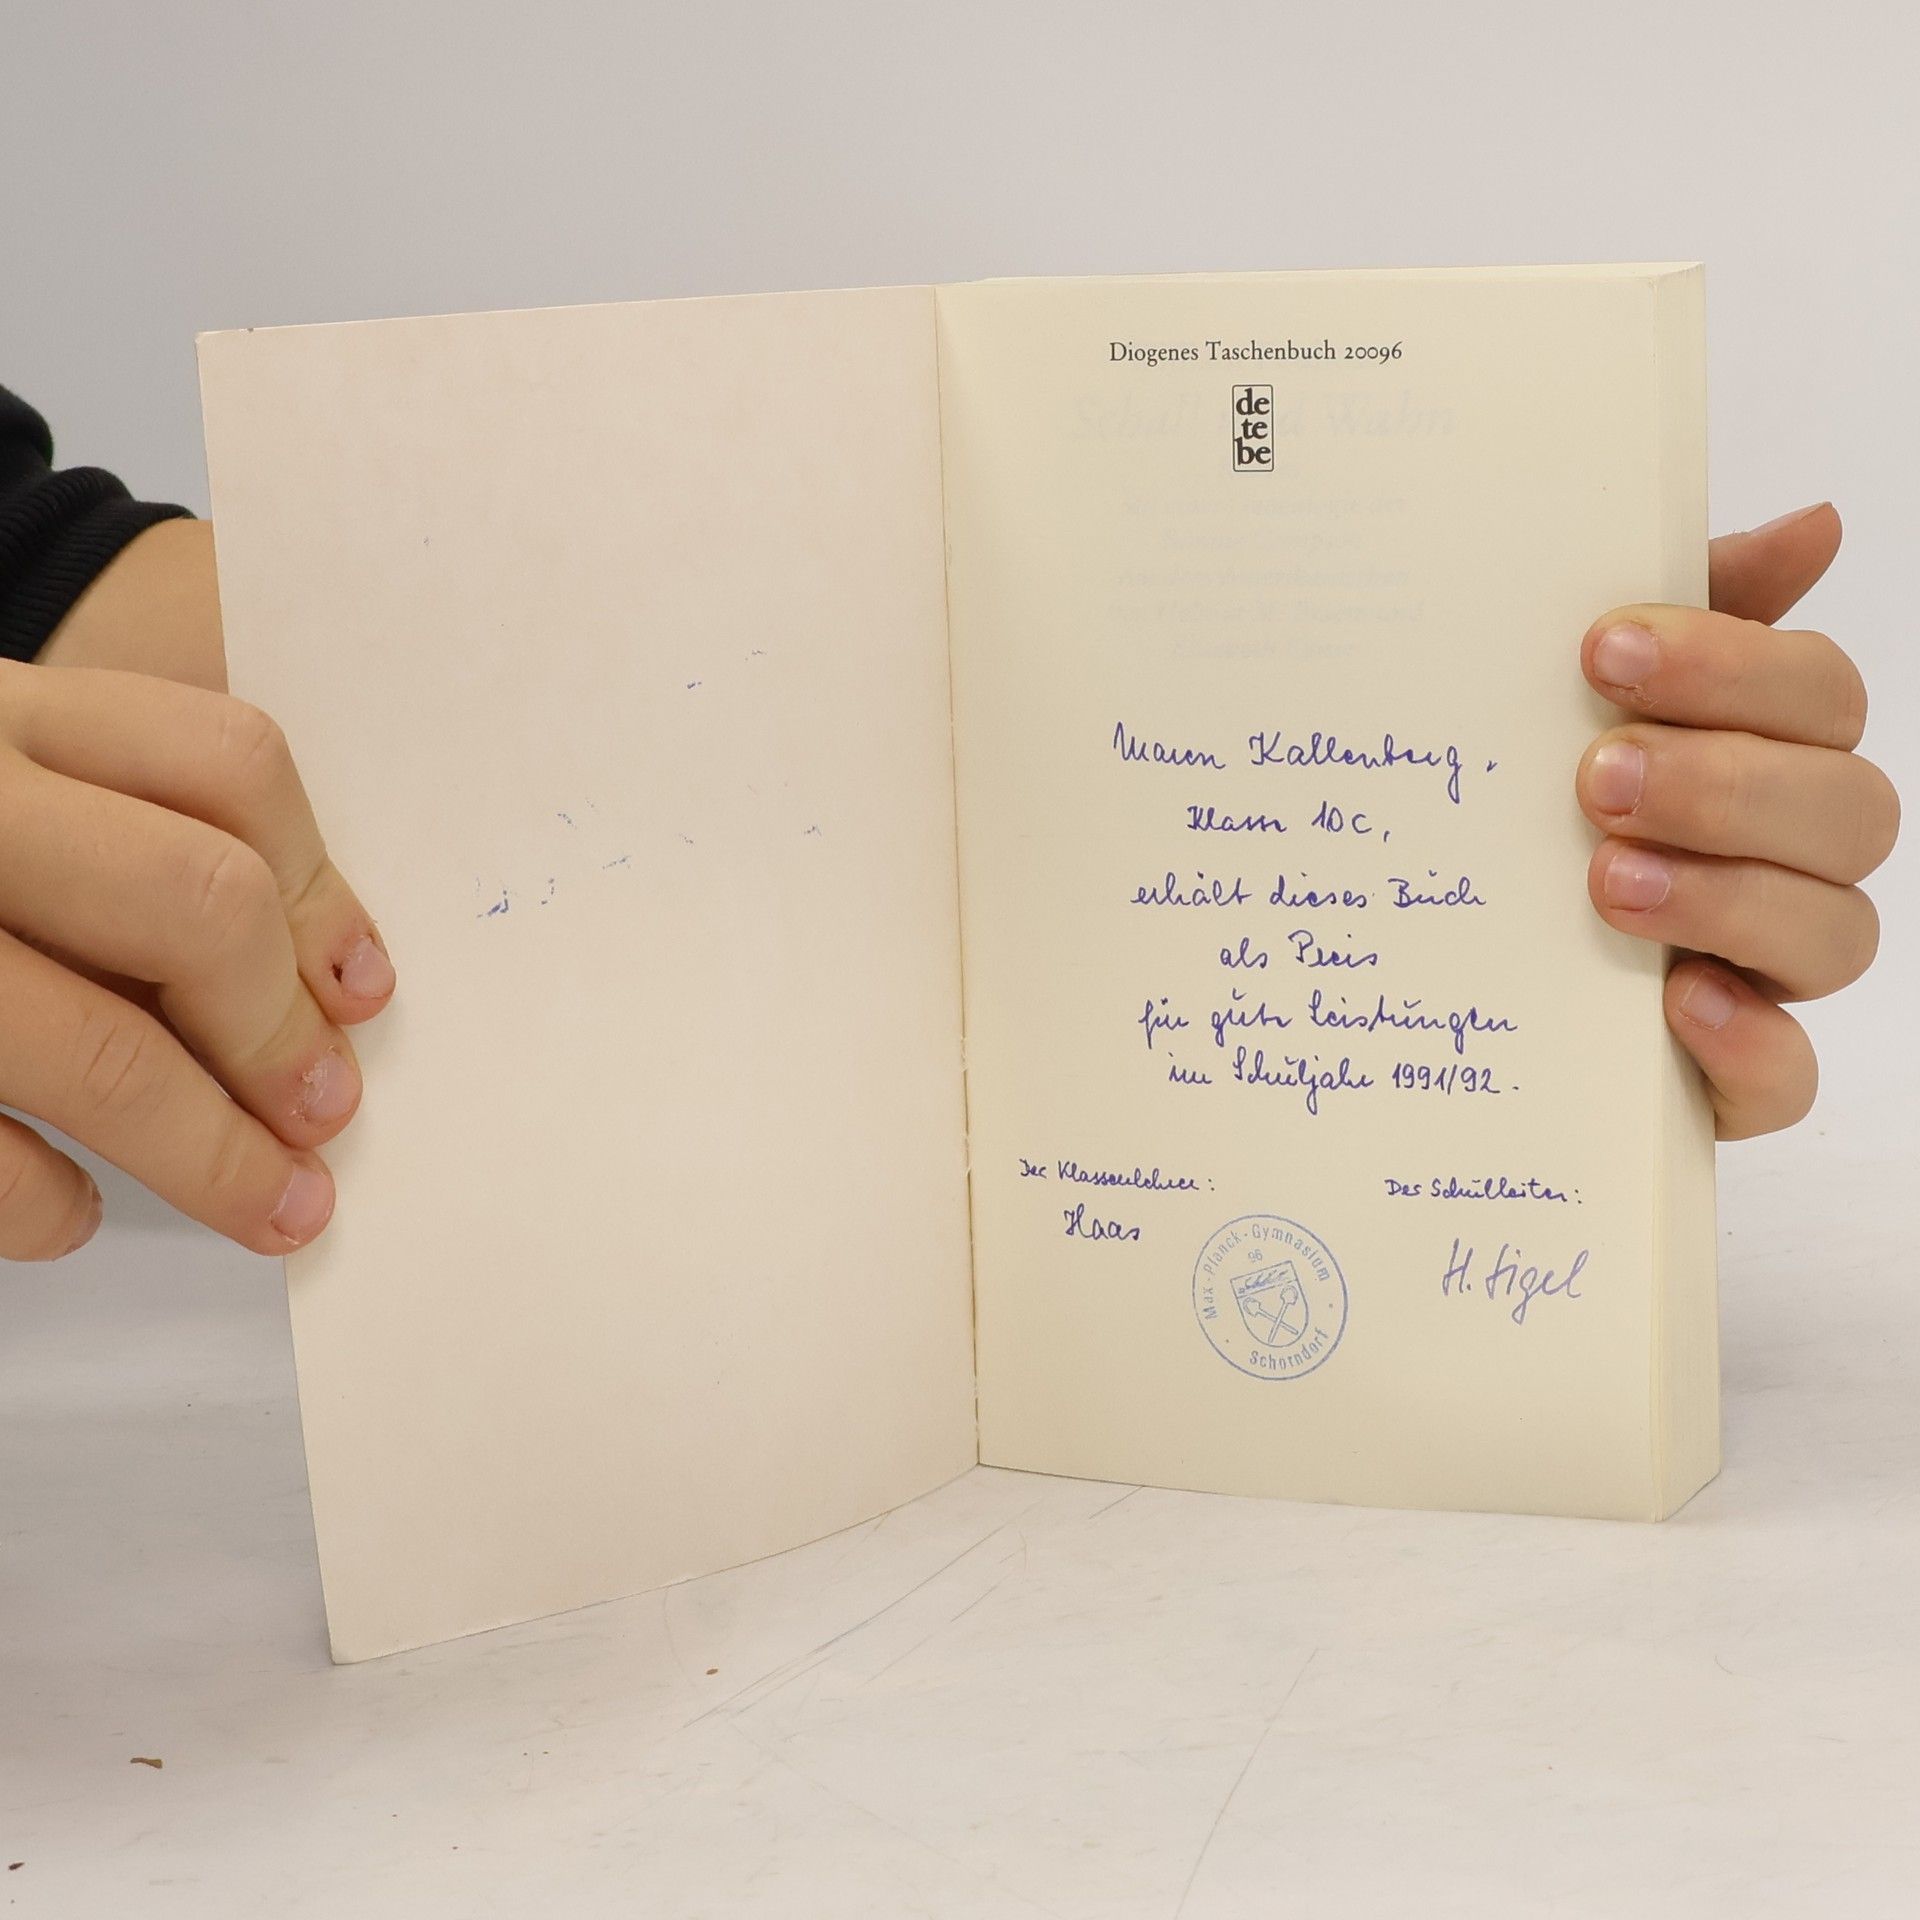 Diogenes Taschenbuch 20096
de
te
be
Schall und Wahn
Maren Kallenberg,
Klasse 10c,
erhält dieses Buch
als Preis
für gute Leistungen
im Schuljahr 1991/92.
Der Klassenlehrer:
Haas
Der Schulleiter:
H. Sigel
Max-Planck-Gymnasium
96
Schorndorf